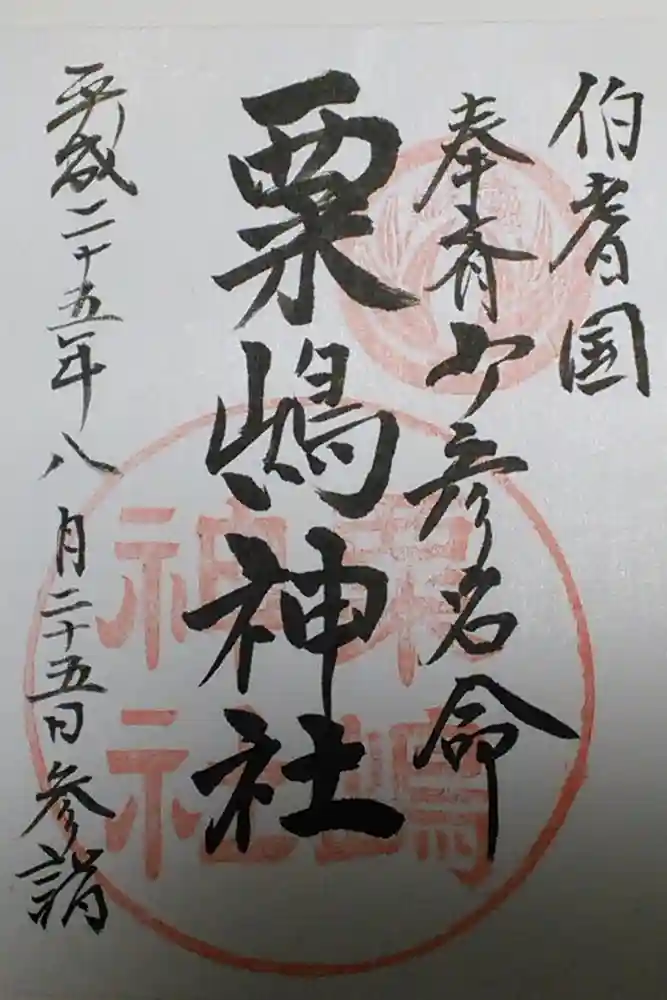 伯耆国
奉斎少彦名命
粟嶋神社
平成二十五年八月二十五日参詣
粟嶋神社